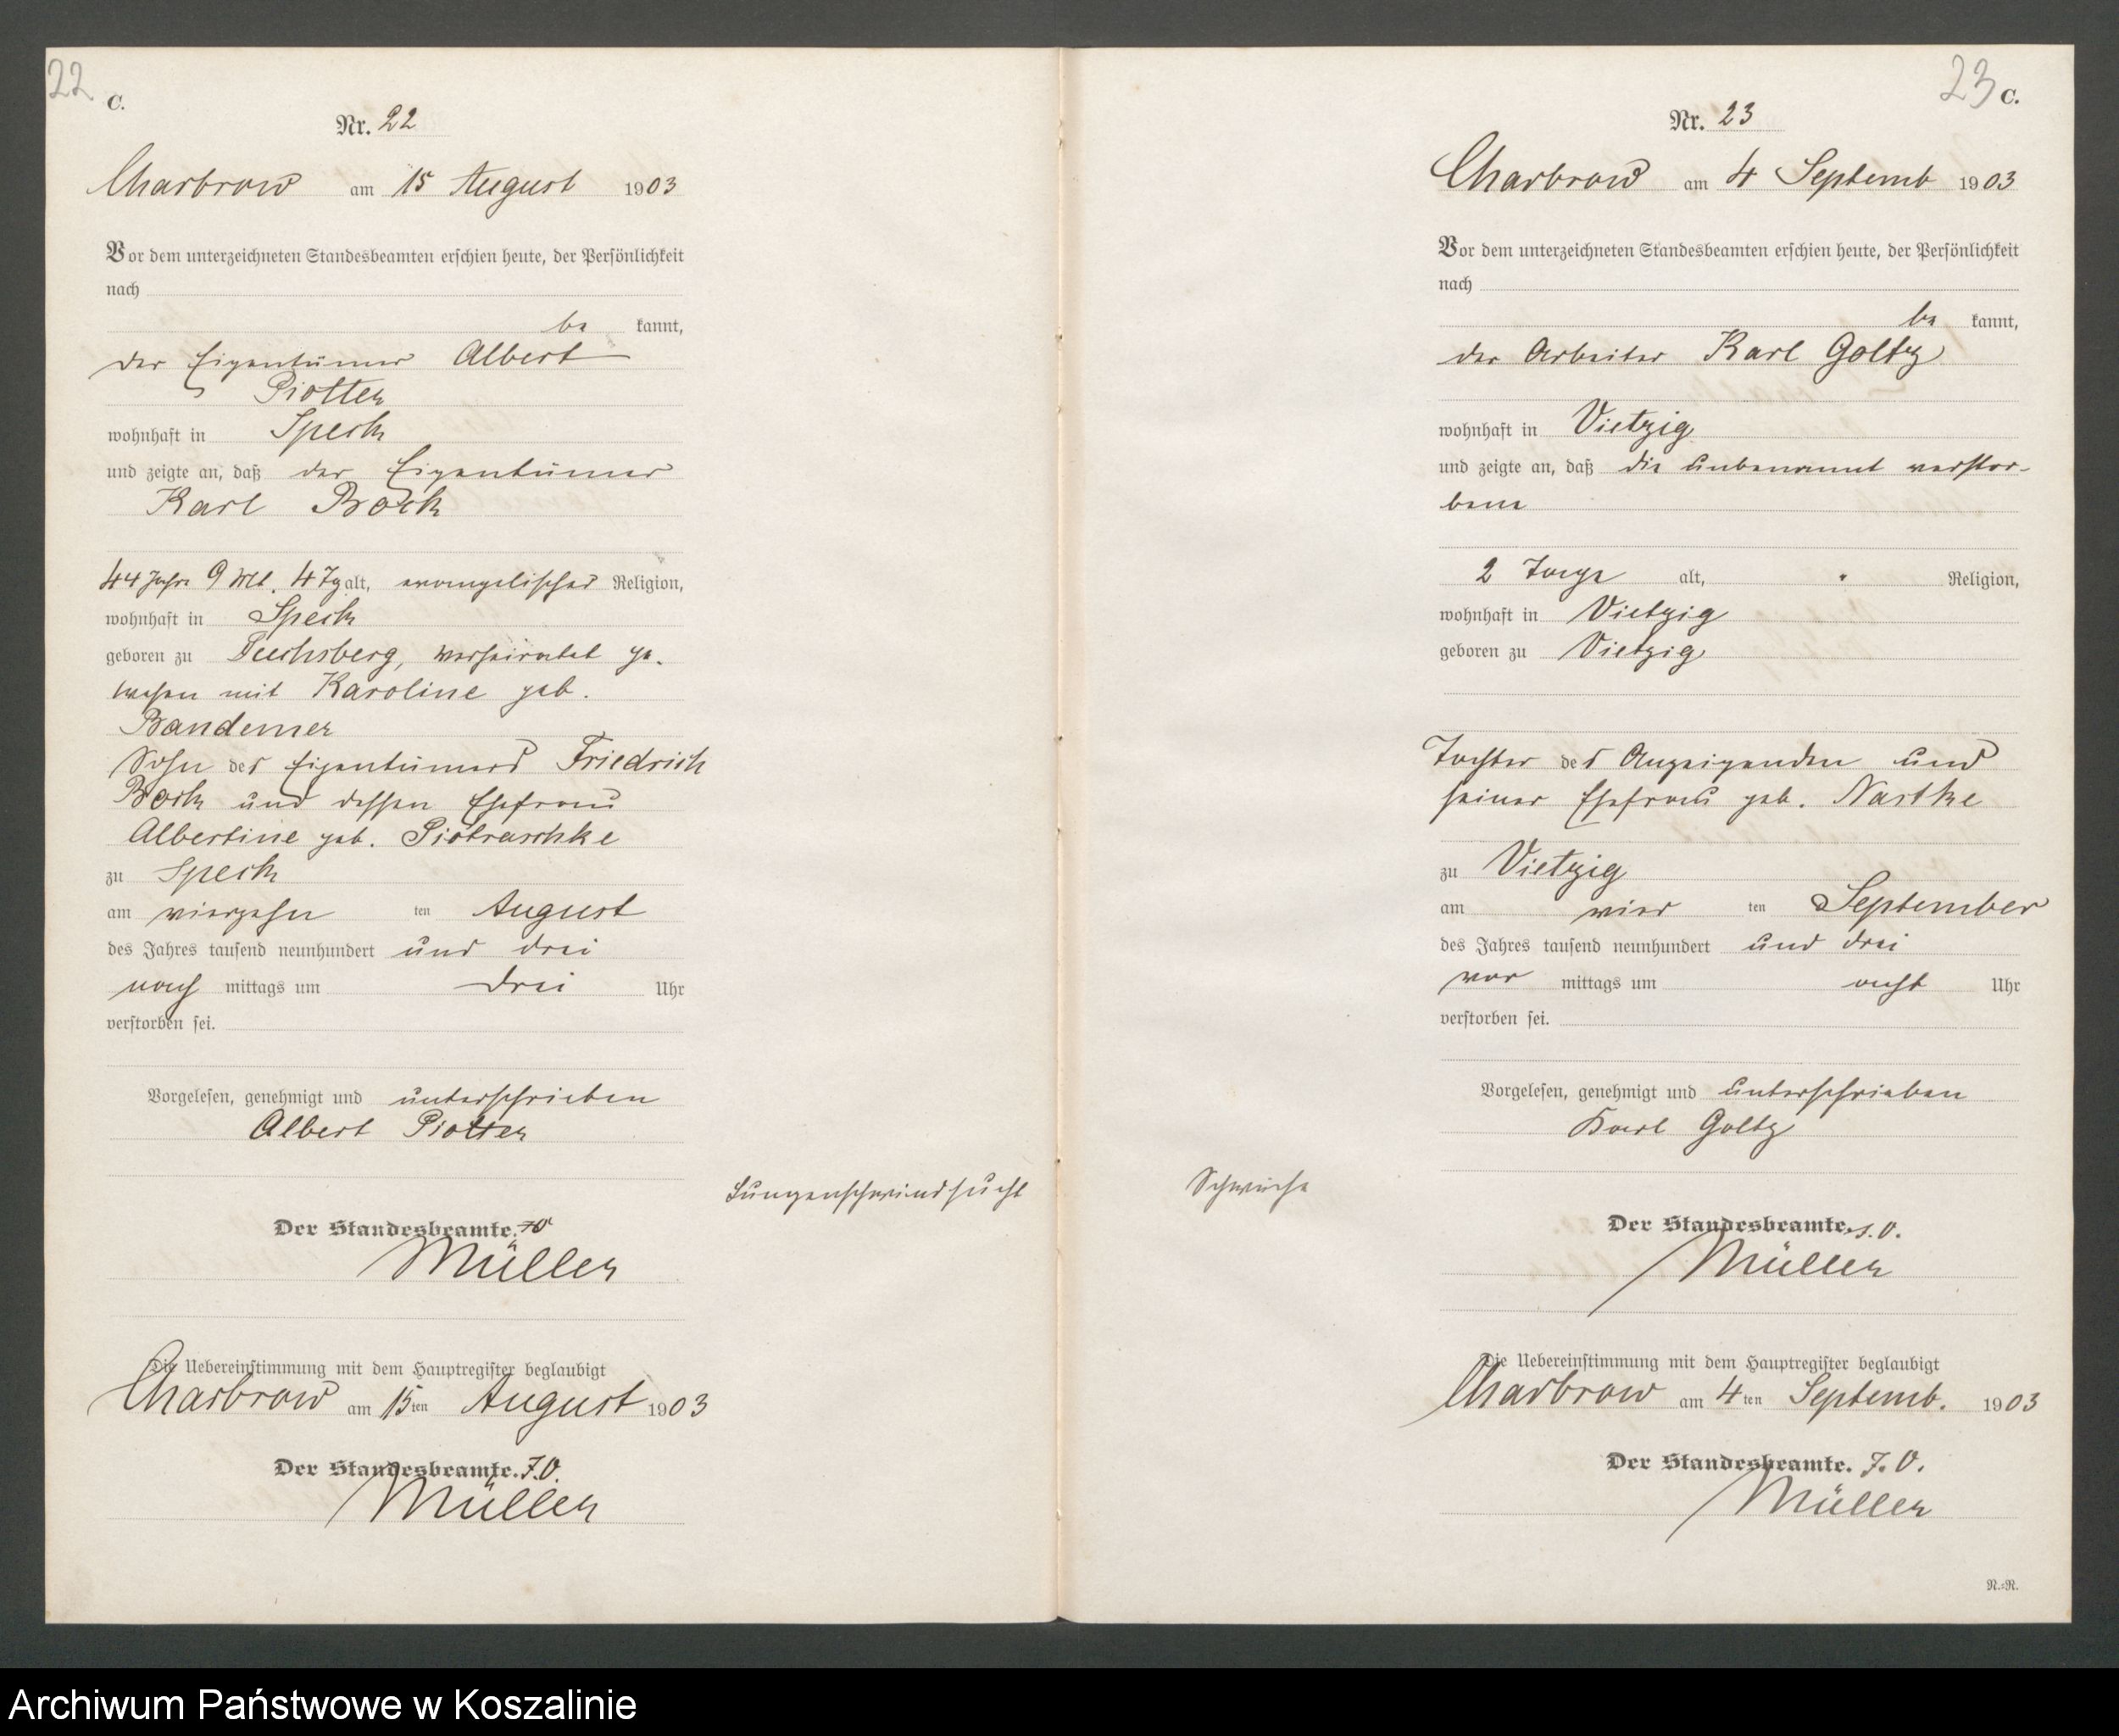 22
C.
Nr. 22
Charbrow am 15 August 1903
Vor dem unterzeichneten Standesbeamten erschien heute, der Persönlichkeit
nach
be kannt,
der Eigentümer Albert
Piotter
wohnhaft in Speck
und zeigte an, daß der Eigentümer
Karl Bock
44 Jahre 9 Mt. 4 Tg alt, evangelischer Religion,
wohnhaft in Speck
geboren zu Fuchsberg, verheiratet ge-
wesen mit Karoline geb.
Bandemer
Sohn des Eigentümers Friedrich
Bock und dessen Ehefrau
Albertine geb. Piotraschke
zu Speck
am vierzehn ten August
des Jahres tausend neunhundert und drei
nach mittags um drei Uhr
verstorben sei.
Vorgelesen, genehmigt und unterschrieben
Albert Piotter
Lungenschwindsucht
Der Standesbeamte.
Müller
Die Uebereinstimmung mit dem Hauptregister beglaubigt
Charbrow am 15ten August 1903
Der Standesbeamte. J.V.
Müller
23 C.
Nr. 23
Charbrow am 4 Septemb 1903
Vor dem unterzeichneten Standesbeamten erschien heute, der Persönlichkeit
nach
be kannt,
der Arbeiter Karl Goltz
wohnhaft in Vietzig
und zeigte an, daß die unbenannt verstor-
bene
2 Tage alt, Religion,
wohnhaft in Vietzig
geboren zu Vietzig
Tochter des Anzeigenden und
seiner Ehefrau geb. Nastke
zu Vietzig
am vier ten September
des Jahres tausend neunhundert und drei
vor mittags um acht Uhr
verstorben sei.
Vorgelesen, genehmigt und unterschrieben
Karl Goltz
Schwäche
Der Standesbeamte. J.V.
Müller
Die Uebereinstimmung mit dem Hauptregister beglaubigt
Charbrow am 4ten Septemb. 1903
Der Standesbeamte. J.V.
Müller
N.=N.
Archiwum Państwowe w Koszalinie